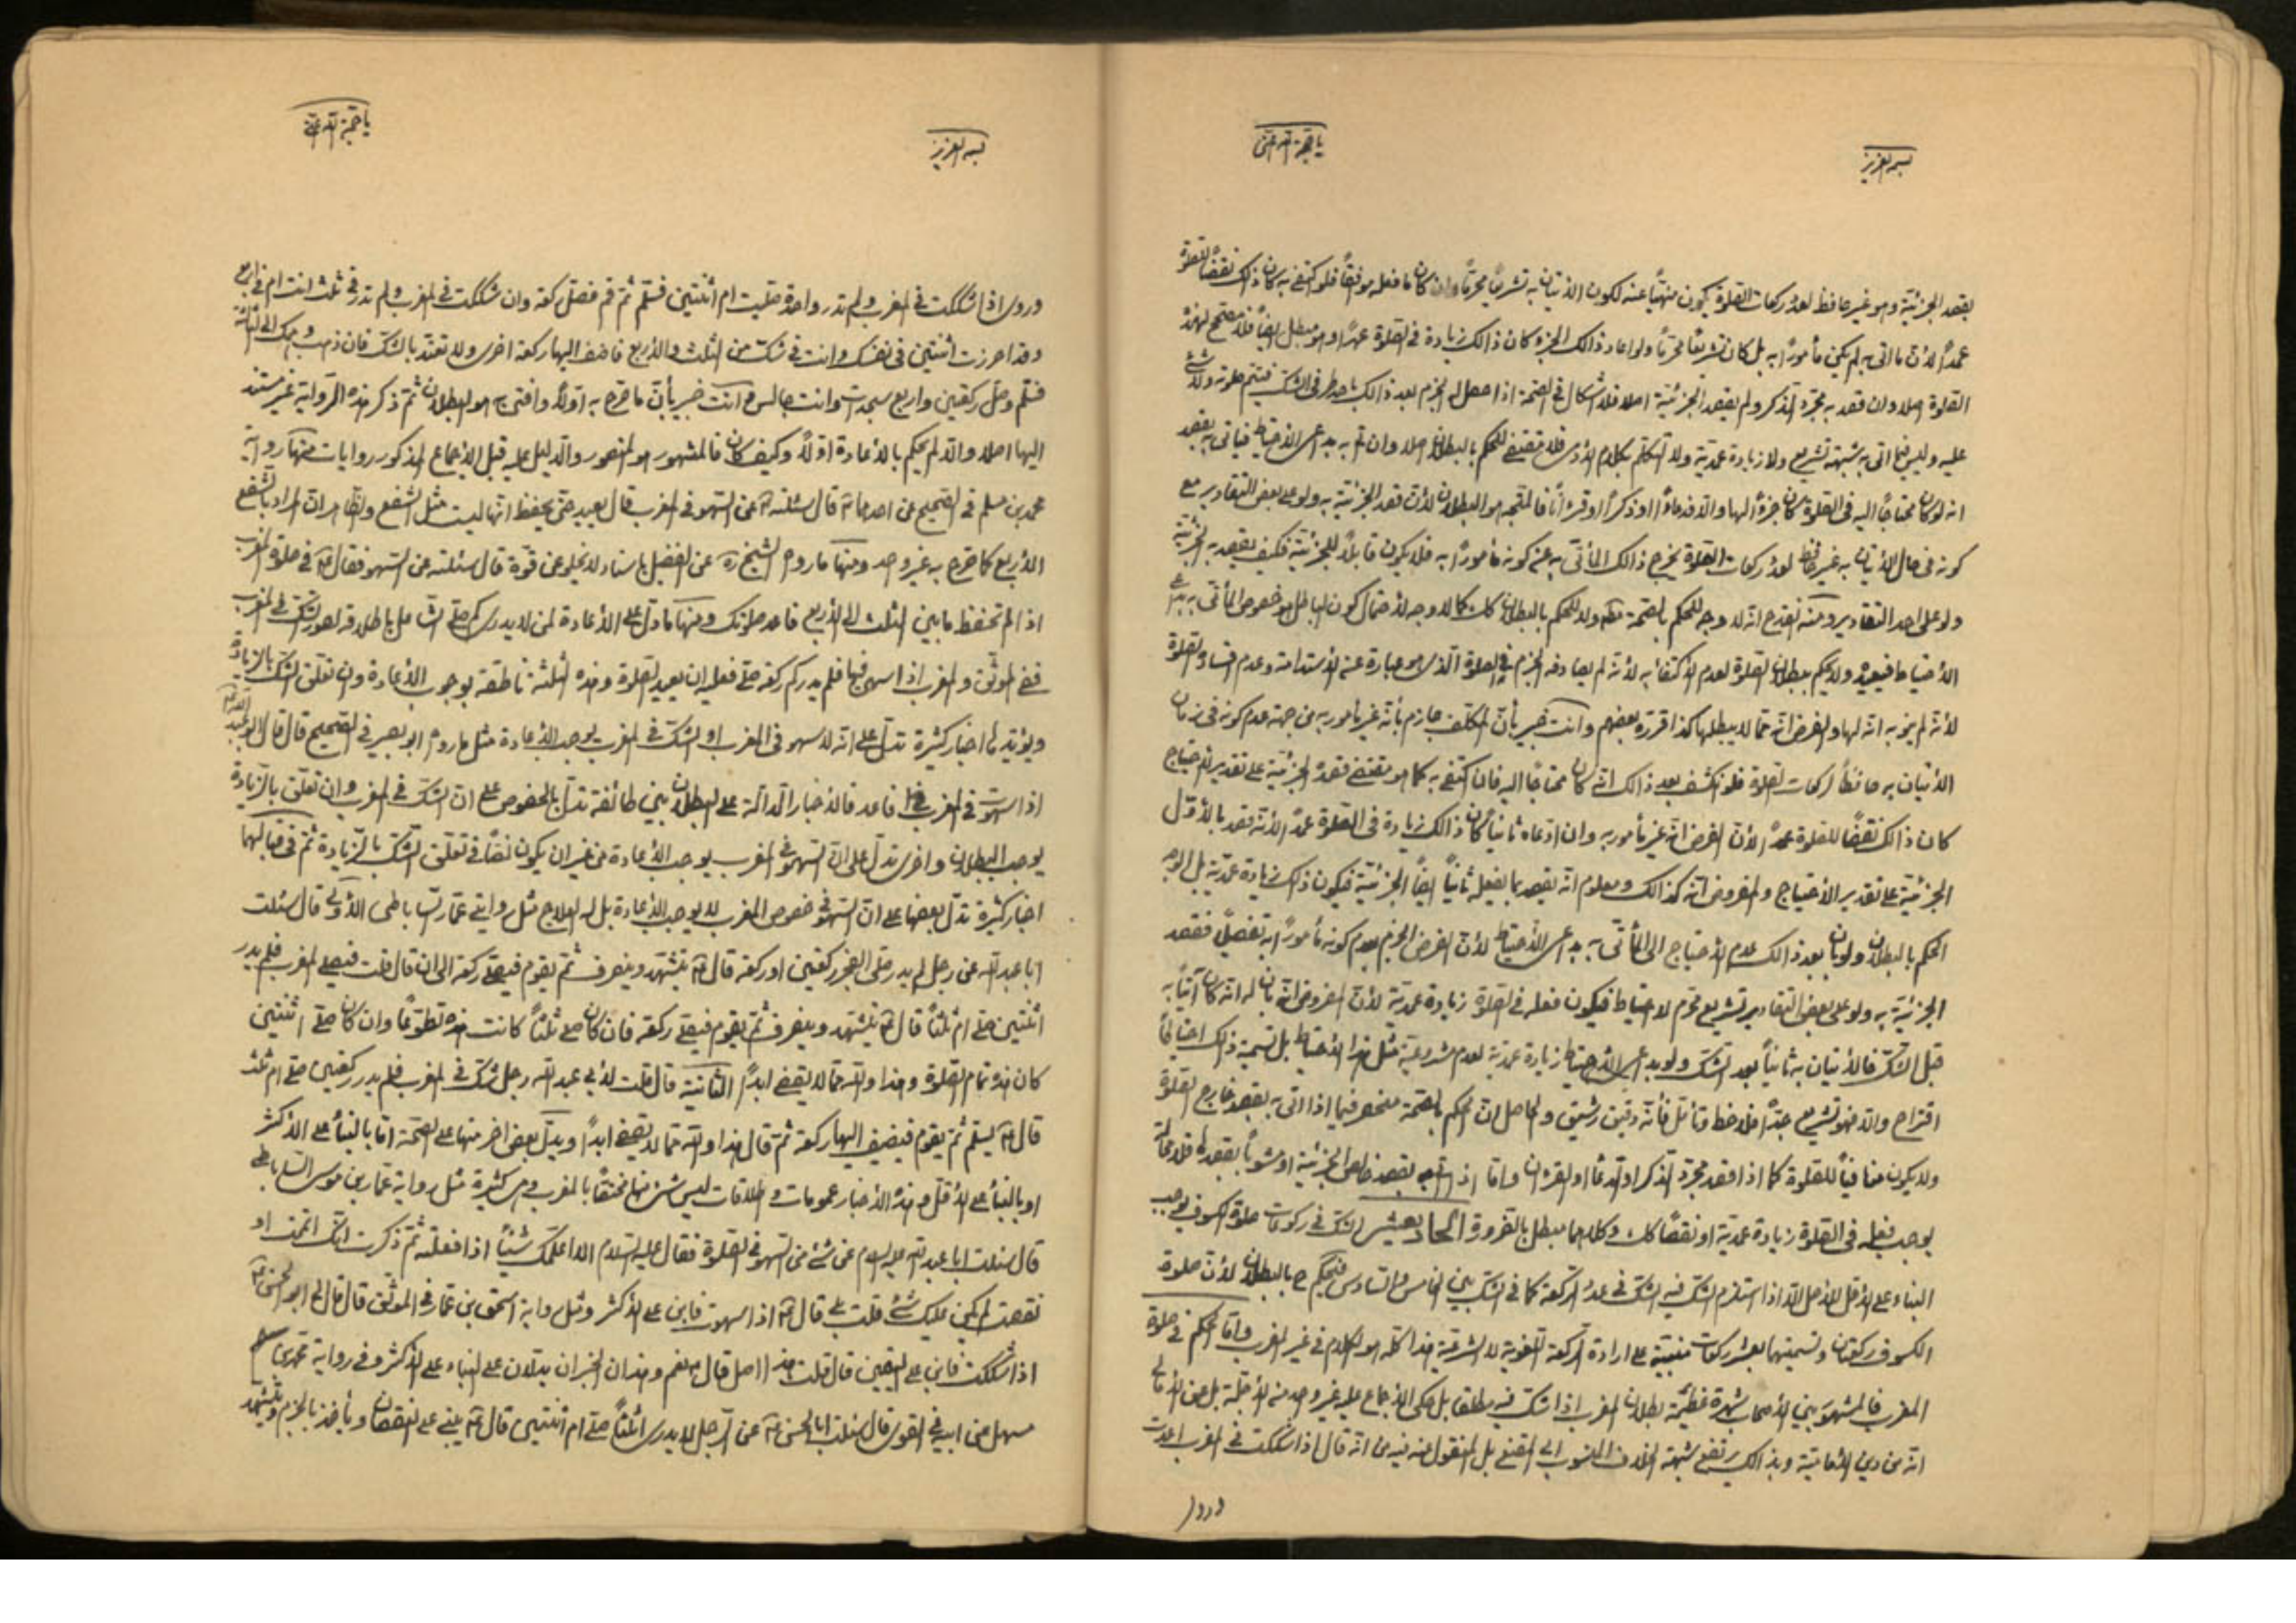 بسمه العزيز
يا حجة الله اغثني
بقصد الجزئية وهو غير حافظ لعدد ركعات الصلوة يكون منهيّاً عنه لكون الاتيان به تشريعاً محرماً وان كان ما فعله موافقاً فلو اكتفى به كان ذلك نقصاً للصلوة
عمداً لان ما اتى به لم يكن مأموراً به بل كان تشريعاً محرّماً ولو اعاد ذالك الجزء كان ذالك زيادة في الصلوة عمداً وهو مبطل ايضاً فلا مصحح لهذه
الصلوة اصلا وان قصد به مجرّد الذكر ولم يقصد الجزئية اصلا فلا اشكال في الصحة اذا حصل له الجزم بعد ذالك باحد طرفى الشك فيتم صلوته ولا شئ
عليه وليس فيما اتى به شبهة تشريع ولا زيادة عمدية ولا التكلم بكلام الادمى فلا مقتضى للحكم بالبطلان اصلا وان اتى به بدعوى الاحتياط فياتى به بقصد
انه لو كان محتاجاً اليه في الصلوة كان جزءً لها والا فدعاءً او ذكراً او قرآناً فالمتجه هو البطلان لان قصد الجزئية به ولو على بعض التقادير مع
كونه في حال الاتيان به غير حافظ لعدد ركعات الصلوة يخرج ذالك المأتى به عن كونه مأموراً به فلا يكون قابلاً للجزئية فكيف يقصد به الجزئية
ولو على احد التقادير ومنه انقدح انه لا وجه للحكم بالصحة مطلقا ولا للحكم بالبطلان كك كما لا وجه لاحتمال كون الباطل هو خصوص المأتى به بدعوى
الاحتياط فيعيده ولا يحكم ببطلان الصلوة لعدم الاكتفاء به لانه لم يصادف الجزم في الصلوة الذى هو عبارة عن الاستدامة وعدم فساد الصلوة
لانه لم يجز به انه لها والفرض انه مما لا يبطلها كذا قرره بعضهم وانت خبير بأن المكلف جازم بأنه غير مأمور به من جهة عدم كونه في زمان
الاتيان به حافظاً لركعات الصلوة فلو انكشف بعد ذالك انه كان محتاجاً اليه فان اكتفى به كما هو مقتضى قصد الجزئية على تقدير الاحتياج
كان ذالك نقصاً للصلوة عمداً لان الفرض انه غير مأمور به وان ادعاه ثانياً كان ذالك زيادة في الصلوة عمداً لانه قصد بالاوّل
الجزئية على تقدير الاحتياج والمفروض انه كذالك ومعلوم انه يقصد بما يفعله ثانياً ايضاً الجزئية فيكون ذلك زيادة عمدية بل الوجه
الحكم بالبطلان ولو بان بعد ذالك عدم الاحتياج الى المأتى به بدعوى الاحتياط لان الفرض الجزم بعدم كونه مأموراً به تفصيلاً فقصد
الجزئية به ولو على بعض التقادير تشريع محرم لا احتياط فيكون فعله في الصلوة زيادة عمدية لان المفروض انه بان له انه كان آتياً به
قبل الشك فالاتيان به ثانياً بعد الشك ولو بدعوى الاحتياط زيادة عمدية لعدم مشروعية مثل هذا الاحتياط بل تسمية ذلك احتياطاً
اقتراح والا فهو تشريع جدّاً فلاحظ وتأمل فأنه دقيق رشيق والحاصل ان الحكم بالصحة منحصر فيما اذا اتى به بقصد خارج الصلوة
ولا يكون منافياً للصلوة كما اذا قصد مجرّد الذكر او الدعاء او القرآن واما اذا اتى به بقصد خالص الجزئية او مشوباً بقصدها فلا محالة
يوجب فعله في الصلوة زيادة عمدية او نقصاً كك وكلاهما مبطل بالضرورة الحاديعشر الشك في ركوعات صلوة الكسوف يوجب
البناء على الاقل للاصل الا اذا استلزم الشك فيه الشك في عدد الركعة كما في الشك بين الخامس والسادس فيحكم ح بالبطلان لان صلوة
الكسوف ركعتان وتسميتها بعشر ركعات مبنية على ارادة الركعة اللغوية لا الشرعية هذا كله هو الكلام في غير المغرب واما الحكم في صلوة
المغرب فالمشهور بين الاصحاب شهرة عظيمة بطلان المغرب اذا شك فيه مطلقا بل حكى الاجماع عليه غير واحد من الاجلة بل عن الامالى
انه من دين الامامية وبذالك يرتفع شبهة الخلاف المنسوب الى المقنع بل المنقول عنه فيه من انه قال اذا شككت في المغرب اعدت
وروا
بسمه العزيز
يا حجة الله اغثني
وروى اذا شككت في المغرب ولم تدر واحدة صليت ام اثنتين فسلم ثم قم فصل ركعة وان شككت في المغرب ولم تدر في ثلث انت ام في اربع
وقد احرزت اثنتين في نفسك وانت في شك من الثلث والاربع فاضف اليها ركعة اخرى ولا تعتد بالشك فان ذهب وهمك الى الثالثة
فسلم وصل ركعتين واربع سجدات وانت جالس وانت خبير بأن ما صرح به اولاً وافتى به هو البطلان ثم ذكر هذه الرواية غير مستند
اليها اصلا والا لم يحكم بالاعادة اولاً وكيف كان فالمشهور هو المنصور والدليل عليه قبل الاجماع المذكور روايات منها رواية
محمد بن مسلم في الصحيح عن احدهما ع قال سئلته ع عن السهو في المغرب قال يعيد حتى يحفظ انها ليست مثل الشفع والظاهر ان المراد بالشفع
الاربع كما صرح به غير واحد ومنها ما رواه الشيخ ره عن الفضيل باسناد لا يخلو عن قوة قال سئلته عن السهو فقال ع في صلوة المغرب
اذا لم تحفظ ما بين الثلث الى الاربع فاعد صلوتك ومنها ما دل على الاعادة لمن لا يدرى كم صلى الشامل باطلاقه لصورة الشك في المغرب
ففى الموثق والمغرب اذا سهى فيها فلم يدر كم ركعة صلى فعليه ان يعيد الصلوة وهذه الثلثة ناطقة بوجوب الاعادة وان تعلق الشك بالزيادة
ويؤيدها اخبار كثيرة تدل على انه لا سهو في المغرب او الشك في المغرب يوجب الاعادة مثل ما رواه ابو بصير في الصحيح قال قال ابو عبد الله ع
اذا سهوت في المغرب فاعد فالاخبار الدالة على البطلان بين طائفة تدل بالخصوص على ان الشك في المغرب وان تعلق بالزيادة
يوجب البطلان واخرى تدل على ان السهو في المغرب يوجب الاعادة من غير ان يكون نصّاً في تعلق الشك بالزيادة ثم في قبالها
اخبار كثيرة تدل بعضها على ان السهو في خصوص المغرب لا يوجب الاعادة بل له العلاج مثل روايتى عمار الساباطى الاولى قال سئلت
ابا عبد الله عن رجل لم يدر صلى الفجر ركعتين او ركعة قال ع يتشهد وينصرف ثم يقوم فيصلى ركعة الى ان قال قلت فيصلى المغرب فلم يدر
اثنتين صلى ام ثلثاً قال ع يتشهد وينصرف ثم يقوم فيصلى ركعة فان كان صلى ثلثاً كانت هذه تطوعاً وان كان صلى اثنتين
كان هذه تمام الصلوة وهذا والله مما لا يقضى ابداً الثانية قال قلت لابى عبد الله رجل شك في المغرب فلم يدر ركعتين صلى ام ثلث
قال ع يسلم ثم يقوم فيضيف اليها ركعة ثم قال هذا والله مما لا يقضى ابداً ويدل بعض اخر منها على الصحة اما بالبناء على الاكثر
او بالبناء على الاقل وهذه الاخبار عمومات واطلاقات ليس شئ منها مختصّاً بالمغرب وهى كثيرة مثل رواية عمار بن موسى الساباطى
قال سئلت ابا عبد الله عليه السلام عن شئ من السهو في الصلوة فقال عليه السلام الا اعلمك شيئاً اذا فعلته ثم ذكرت انك اتممت او
نقصت لم يكن عليك شئ قلت بلى قال ع اذا سهوت فابن على الاكثر ومثل رواية اسحق بن عمار في الموثق قال قال لى ابو الحسن ع
اذا شككت فابن على اليقين قال قلت هذا اصل قال نعم وهذان الخبران يدلان على البناء على الاكثر وفي رواية محمد بن
سهل عن ابيه في القوى قال سئلت ابا الحسن ع عن الرجل لا يدرى اثلثاً صلى ام اثنتين قال ع يبنى على النقصان ويأخذ بالجزم ويتشهد